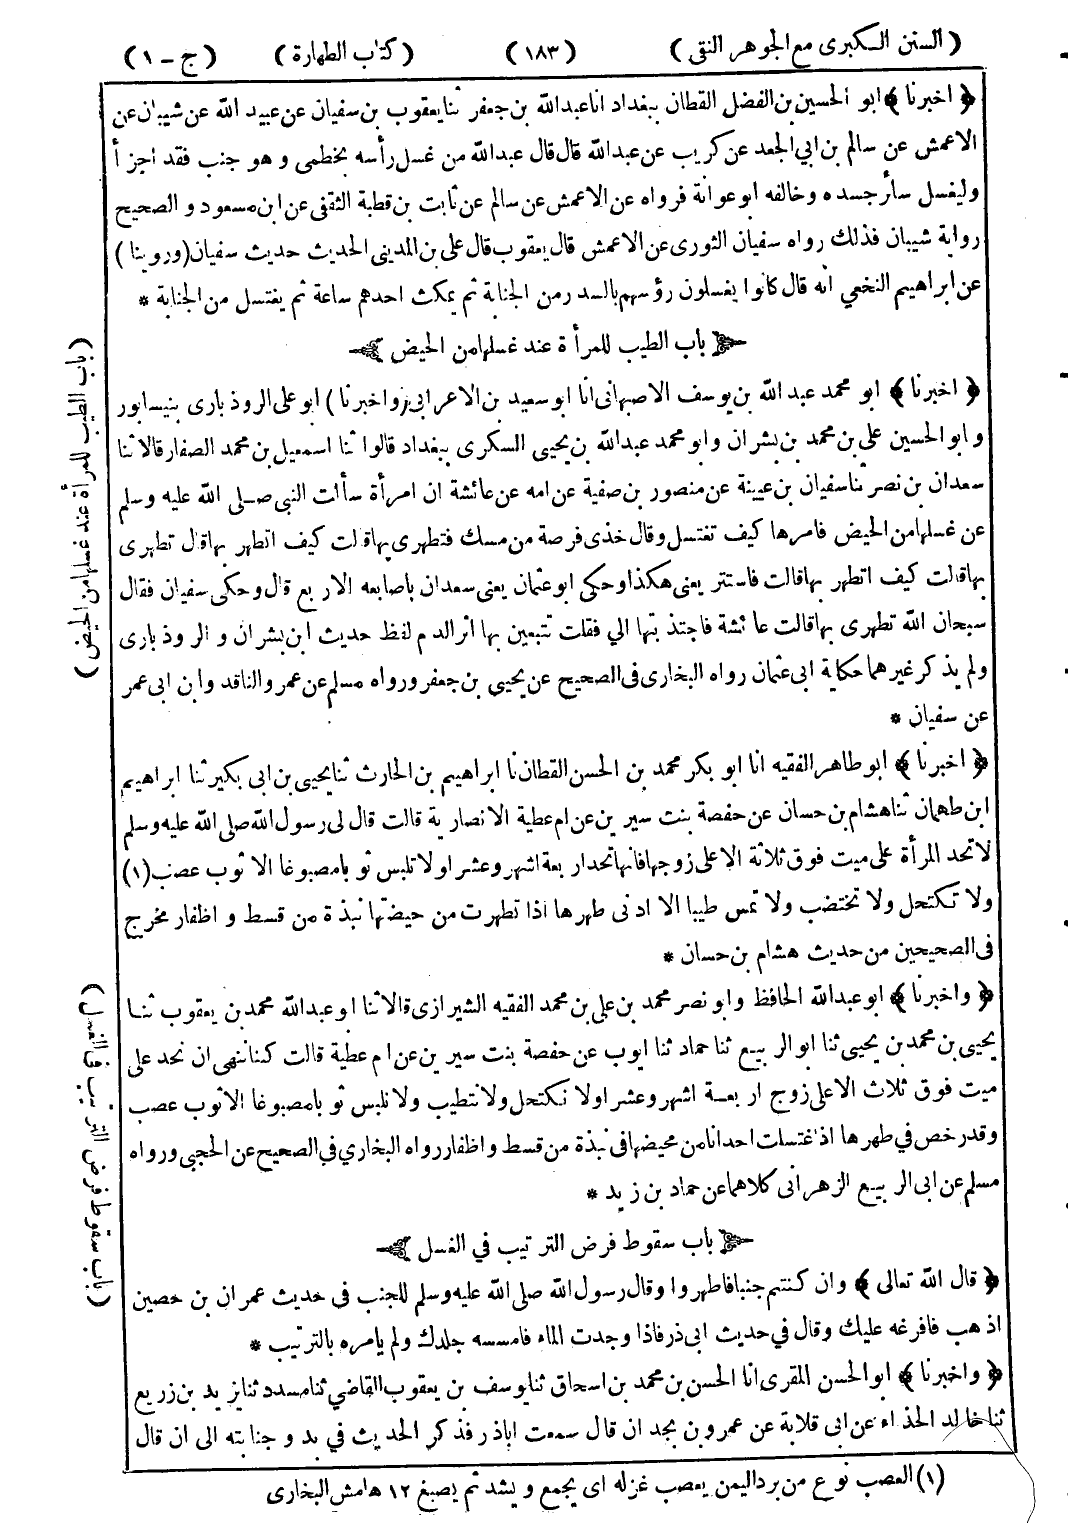 (السنن الكبرى مع الجوهر النقى) (١٨٣) (كتاب الطهارة) (ج - ١)
﴿ اخبرنا ﴾ ابو الحسين بن الفضل القطان ببغداد انا عبدالله بن جعفر ثنا يعقوب بن سفيان عن عبيد الله عن شيبان عن
الاعمش عن سالم بن ابي الجعد عن كريب عن عبدالله قال قال عبدالله من غسل رأسه بخطمى و هو جنب فقد اجزأ
وليغسل سائر جسده وخالفه ابو عوانة فرواه عن الاعمش عن سالم عن ثابت بن قطبة الثقفى عن ابن مسعود و الصحيح
رواية شيبان فذلك رواه سفيان الثورى عن الاعمش قال يعقوب قال على بن المدينى الحديث حديث سفيان (وروينا)
عن ابراهيم النخعي انه قال كانوا يغسلون رؤسهم بالسدر من الجنابة ثم يمكث احدهم ساعة ثم يغتسل من الجنابة *
باب الطيب للمرأة عند غسلها من الحيض
﴿ اخبرنا ﴾ ابو محمد عبد الله بن يوسف الاصبهانى انا ابو سعيد بن الاعرابى (واخبرنا) ابو على الروذبارى بنيسابور
و ابو الحسين على بن محمد بن بشران وابو محمد عبدالله بن يحيى السكرى ببغداد قالوا ثنا اسمعيل بن محمد الصفار قالا ثنا
سعدان بن نصر ثنا سفيان بن عيينة عن منصور بن صفية عن امه عن عائشة ان امرأة سألت النبى صلى الله عليه وسلم
عن غسلها من الحيض فامرها كيف تغتسل وقال خذى فرصة من مسك فتطهرى بها قالت كيف اتطهر بها قال تطهرى
بها قالت كيف اتطهر بها قالت فاستتر يعنى هكذا وحكى ابو عثمان يعنى سعدان باصابعه الاربع قال وحكى سفيان فقال
سبحان الله تطهرى بها قالت عائشة فاجتذبتها الي فقلت تتبعين بها اثر الدم لفظ حديث ابن بشران و الروذبارى
ولم يذكر غيرهما حكاية ابى عثمان رواه البخارى فى الصحيح عن يحيى بن جعفر ورواه مسلم عن عمرو الناقد وابن ابى عمر
عن سفيان *
﴿ اخبرنا ﴾ ابو طاهر الفقيه انا ابو بكر محمد بن الحسن القطان نا ابراهيم بن الحارث ثنا يحيى بن ابى بكير ثنا ابراهيم
ابن طهمان ثنا هشام بن حسان عن حفصة بنت سيرين عن ام عطية الانصارية قالت قال لى رسول الله صلى الله عليه وسلم
لا تحد المرأة على ميت فوق ثلاثة الا على زوجها فانها تحد اربعة اشهر وعشرا ولا تلبس ثوبا مصبوغا الا ثوب عصب (١)
ولا تكتحل ولا تختضب ولا تمس طيبا الا ادنى طهرها اذا تطهرت من حيضتها نبذة من قسط و اظفار مخرج
فى الصحيحين من حديث هشام بن حسان *
﴿ واخبرنا ﴾ ابو عبدالله الحافظ وابو نصر محمد بن على بن محمد الفقيه الشيرازى قالا ثنا ابو عبدالله محمد بن يعقوب ثنا
يحيى بن محمد بن يحيى ثنا ابو الربيع ثنا حماد ثنا ايوب عن حفصة بنت سيرين عن ام عطية قالت كنا ننهى ان نحد على
ميت فوق ثلاث الا على زوج اربعة اشهر وعشرا ولا نكتحل ولا نتطيب ولا نلبس ثوبا مصبوغا الا ثوب عصب
وقد رخص في طهرها اذ اغتسلت احدانا من محيضها فى نبذة من قسط و اظفار رواه البخاري في الصحيح عن الحجبى ورواه
مسلم عن ابى الربيع الزهرانى كلاهما عن حماد بن زيد *
باب سقوط فرض الترتيب في الغسل
﴿ قال الله تعالى ﴾ وان كنتم جنبا فاطهروا وقال رسول الله صلى الله عليه وسلم للجنب فى حديث عمران بن حصين
اذهب فافرغه عليك وقال في حديث ابى ذر فاذا وجدت الماء فامسسه جلدك ولم يامره بالترتيب *
﴿ واخبرنا ﴾ ابو الحسن المقرى انا الحسن بن محمد بن اسحاق ثنا يوسف بن يعقوب القاضي ثنا مسدد ثنا يزيد بن زريع
ثنا خالد الحذاء عن ابى قلابة عن عمرو بن بجدان قال سمعت اباذر فذكر الحديث في بد و جنابته الى ان قال
(١) العصب نوع من برد اليمن يعصب غزله اى يجمع و يشد ثم يصبغ ١٢ هامش البخارى
(باب الطيب للمرأة عند غسلها من الحيض)
(باب سقوط فرض الترتيب فى الغسل)